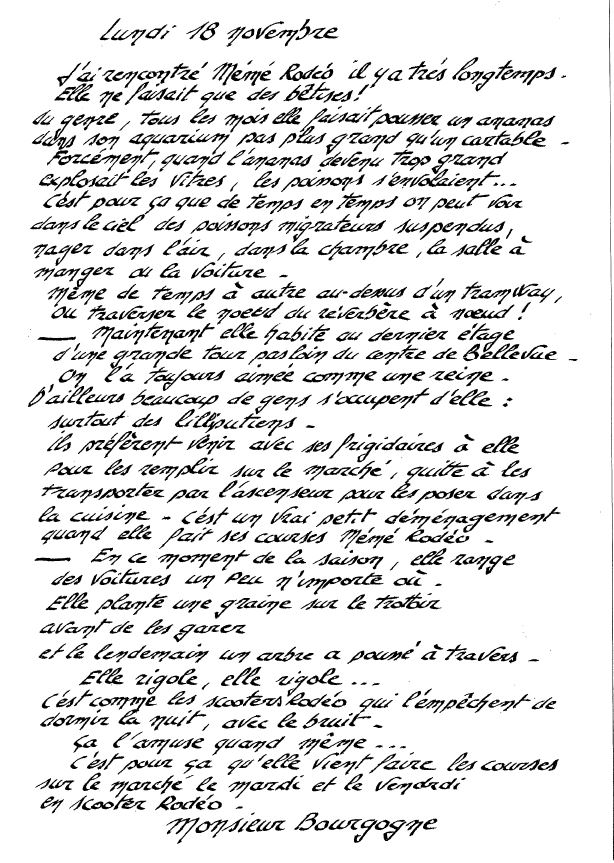 Lundi 18 novembre
J'ai rencontré Mémé Rodéo il y a très longtemps.
Elle ne faisait que des bêtises!
du genre, tous les mois elle faisait pousser un ananas
dans son aquarium pas plus grand qu'un cartable -
Forcément, quand l'ananas devenu trop grand
explosait les vitres, les poissons s'envolaient...
C'est pour ça que de temps en temps on peut voir
dans le ciel des poissons migrateurs suspendus,
nager dans l'air, dans la chambre, la salle à
manger ou la voiture -
Même de temps à autre au-dessus d'un tramway,
ou traverser le noeud du réverbère à noeud!
— Maintenant elle habite au dernier étage
d'une grande tour pas loin du centre de Bellevue -
On l'a toujours aimée comme une reine -
D'ailleurs beaucoup de gens s'occupent d'elle :
surtout des lilliputiens -
ils préfèrent venir avec ses frigidaires à elle
pour les remplir sur le marché, quitte à les
transporter par l'ascenseur pour les poser dans
la cuisine - C'est un vrai petit déménagement
quand elle fait ses courses Mémé Rodéo -
— En ce moment de la saison, elle range
des voitures un peu n'importe où -
Elle plante une graine sur le trottoir
avant de les garer
et le lendemain un arbre a poussé à travers -
Elle rigole, elle rigole...
C'est comme les scooters Rodéo qui l'empêchent de
dormir la nuit, avec le bruit -
Ça l'amuse quand même...
C'est pour ça qu'elle vient faire les courses
sur le marché le mardi et le vendredi
en scooter Rodéo -
Monsieur Bourgogne